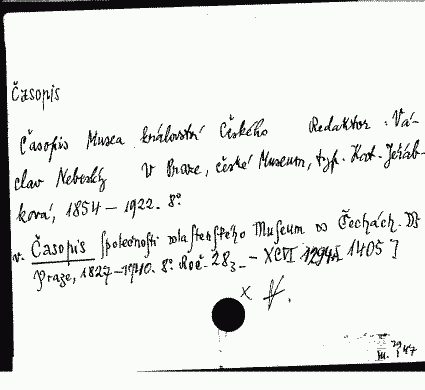 Časopis
Časopis Musea království Českého Redaktor: Vá-
clav Nebeský V Praze, České Museum, typ. Kat. Jeřáb-
ková, 1854 – 1922. 8°.
v. Časopis společnosti wlastenského Museum w Čechách. W
Praze, 1827–1910. 8°. Roč. 28₃ – XCVI 1294[1405]
X
III. 29 47